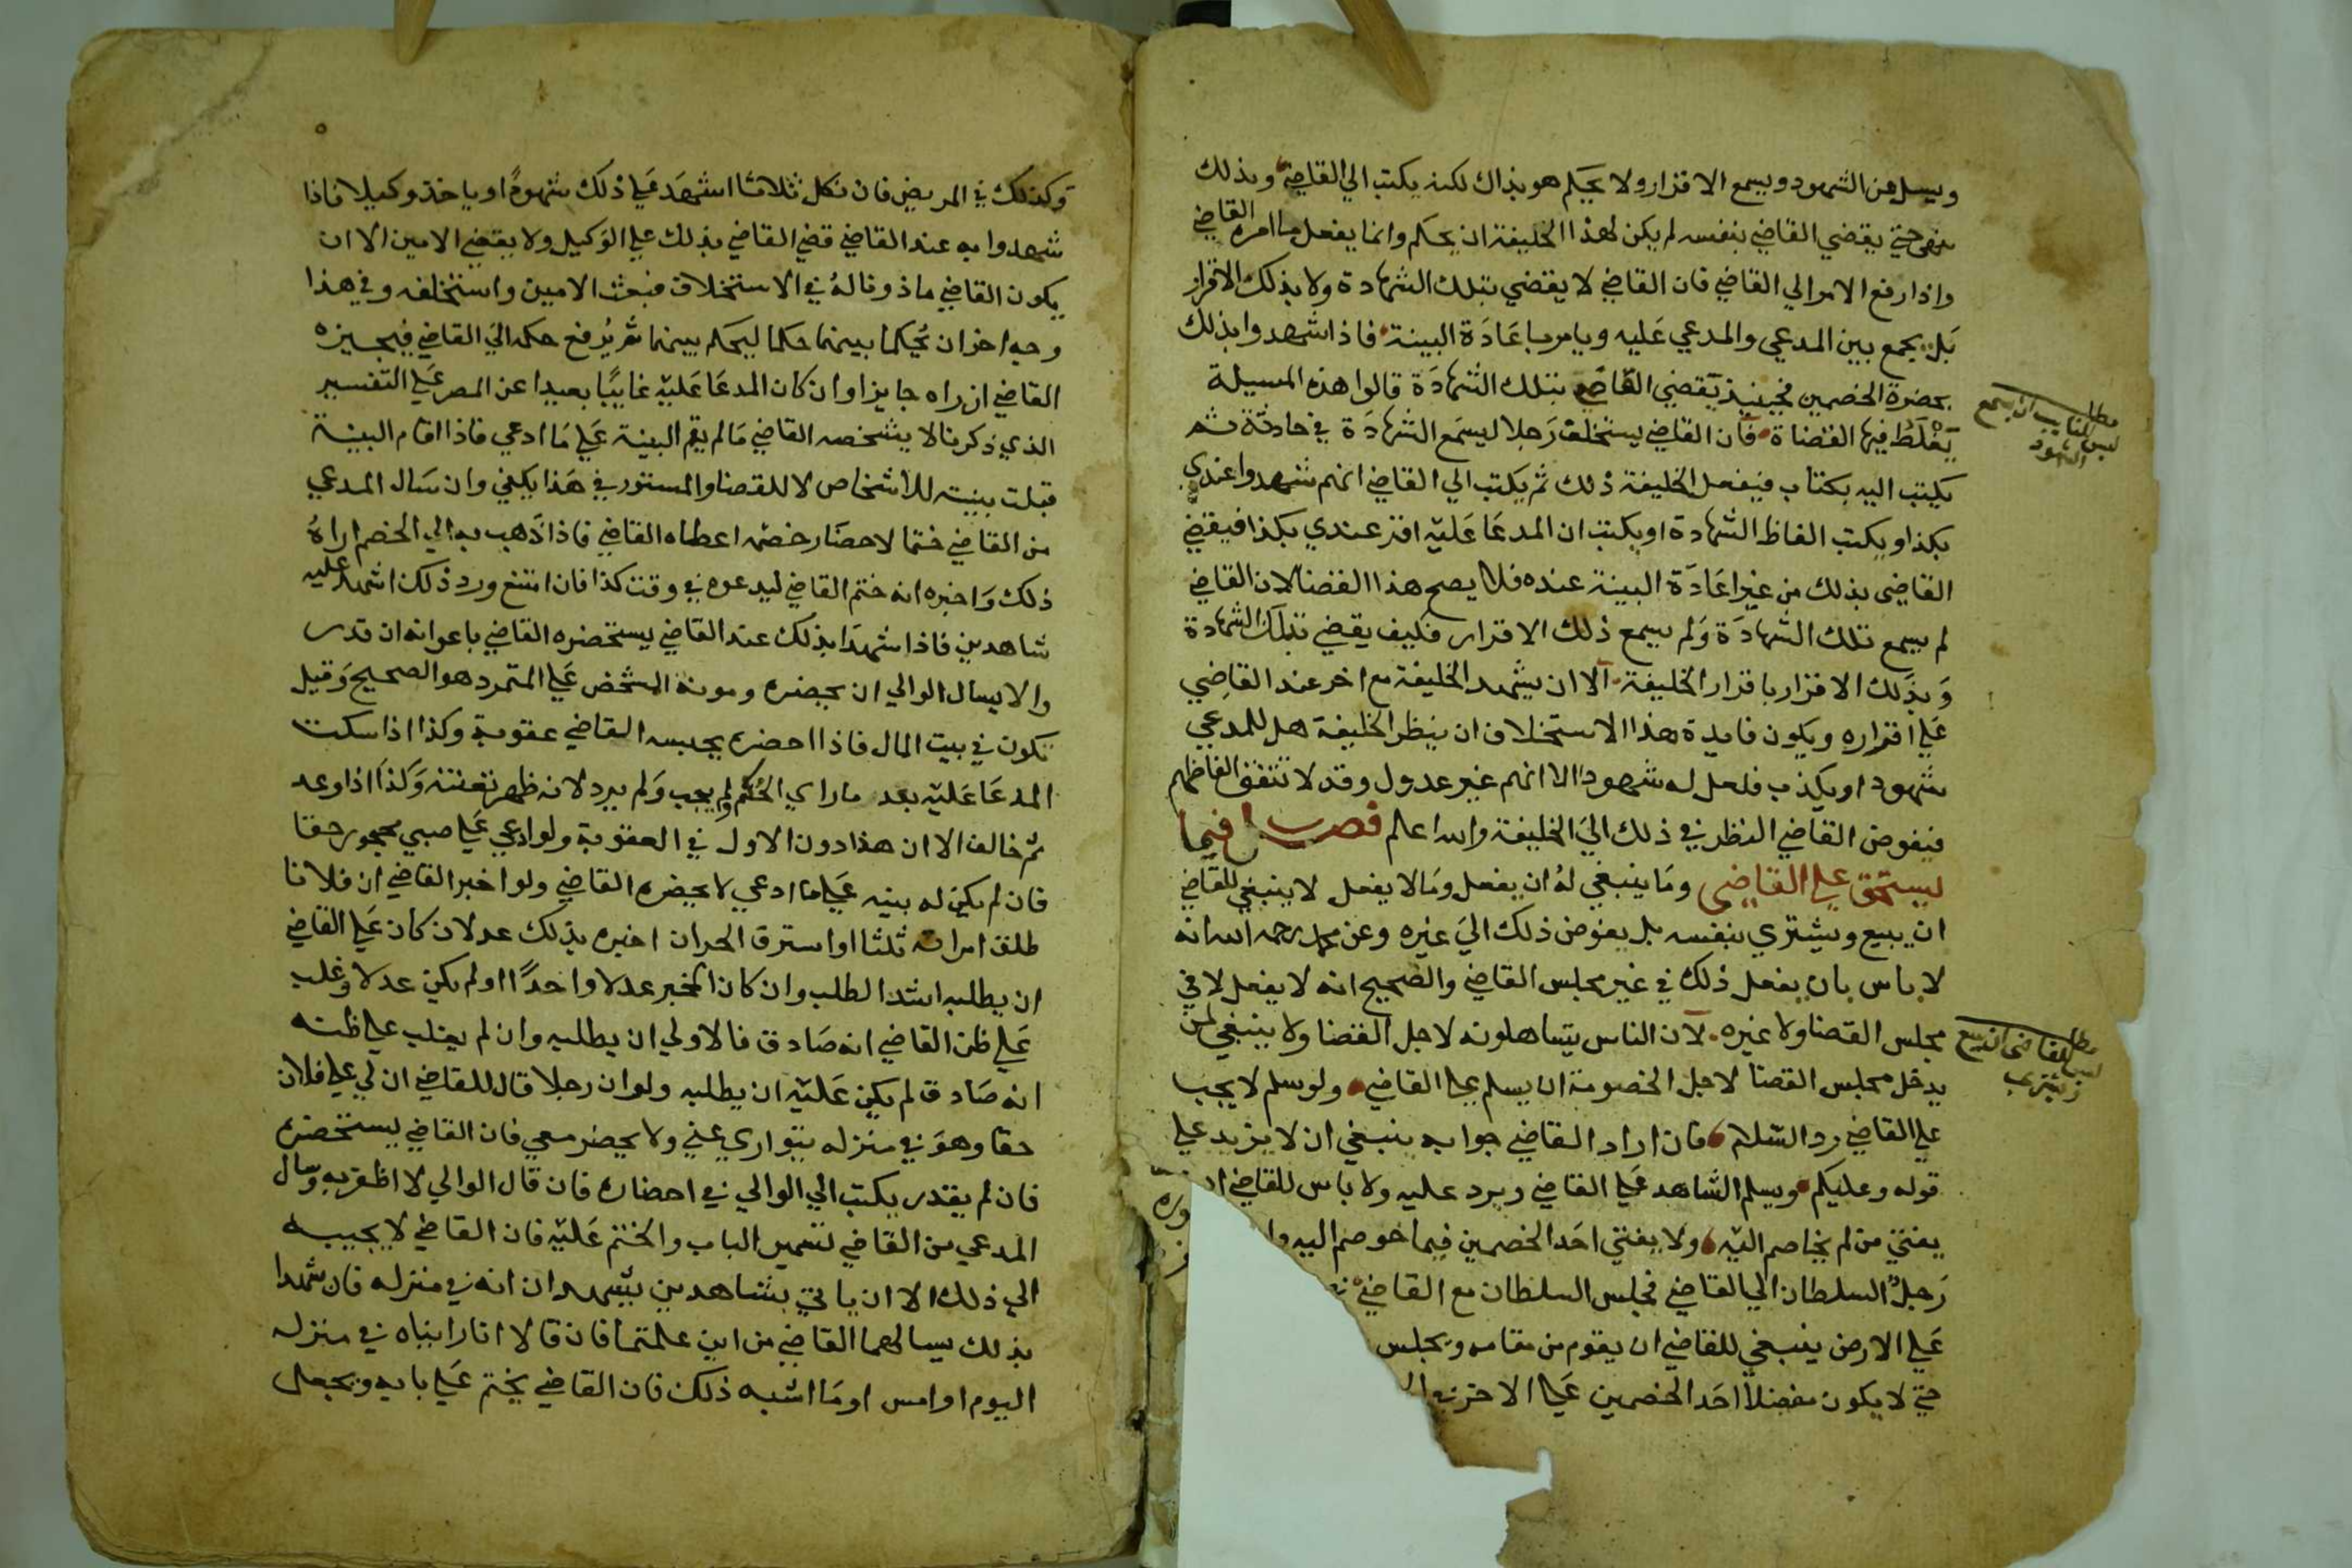 ويسيل عن الشهود ويسمع الاقرار ولا يحكم هو بذاك لكنه يكتب الي القاضي وبذلك
حتي يقضي القاضي بنفسه لم يكن لهذا الخليفة ان يحكم وانما يفعل ما امره القاضي
واذا رفع الامر الي القاضي فان القاضي لا يقضي بتلك الشهادة ولا بذلك الاقرار
بل يجمع بين المدعي والمدعي عليه ويامر باعادة البينة فاذا شهدوا بذلك
بحضرة الخصمين فحينيذ يقضي القاضي بتلك الشهادة قالوا هذه المسيلة
يغلط فيها القضاة فان القاضي يستخلف رجلا ليسمع الشهادة في حادثة ثم
يكتب اليه بكتاب فيفعل الخليفة ذلك ثم يكتب الي القاضي انهم شهدوا عندي
بكذا ويكتب الفاظ الشهادة او يكتب ان المدعا عليه اقر عندي بكذا فيقضي
القاضي بذلك من غير اعادة البينة عنده فلا يصح هذا القضا لان القاضي
لم يسمع تلك الشهادة ولم يسمع ذلك الاقرار فكيف يقضي بتلك الشهادة
وبذلك الاقرار باقرار الخليفة الا ان يشهد الخليفة مع اخر عند القاضي
علي اقراره ويكون فايدة هذا الاستخلاف ان ينظر الخليفة هل للمدعي
شهود او يكذب فلعل له شهودا الا انهم غير عدول وقد لا تتفق الفاظهم
فيفوض القاضي النظر في ذلك الي الخليفة والله اعلم فصل فيما
يستحق علي القاضي وما ينبغي له ان يفعل وما لا يفعل لا ينبغي للقاضي
ان يبيع ويشتري بنفسه بل يفوض ذلك الي غيره وعن محمد رحمه الله انه
لا باس بان يفعل ذلك في غير مجلس القاضي والصحيح انه لا يفعل لا في
مجلس القضا ولا غيره لان الناس يتساهلونه لاجل القضا ولا ينبغي لمن
يدخل مجلس القضا لاجل الخصومة ان يسلم علي القاضي ولو سلم لا يجب
علي القاضي رد السلام فان اراد القاضي جوابه ينبغي ان لا يزيد علي
قوله وعليكم ويسلم الشاهد علي القاضي ويرد عليه ولا باس للقاضي
يفتي من لم يخاصم اليه ولا يفتي احد الخصمين فيما خوصم اليه
رجل السلطان الي القاضي فجلس السلطان مع القاضي
علي الارض ينبغي للقاضي ان يقوم من مقامه ويجلس
حتي لا يكون مفضلا احد الخصمين علي الاخر
مطلب
ليس للنايب ان يسمع
الشهود
مطلب
ليس للقاضي ان يبيع
ويشتري
وكذلك في المريض فان نكل ثلاثا اشهد علي ذلك شهودا وياخذ وكيلا فاذا
شهدوا به عند القاضي قضي القاضي بذلك علي الوكيل ولا يقضي الامين الا ان
يكون القاضي ماذونا له في الاستخلاف فبعث الامين واستخلفه وفي هذا
وجه اخر ان يحكما بينهما حكما ليحكم بينهما ثم يرفع حكمه الي القاضي فيجيزه
القاضي ان راه جايزا وان كان المدعا عليه غايبا بعيدا عن المصر علي التفسير
الذي ذكرنا لا يشخصه القاضي ما لم يقم البينة علي ما ادعي فاذا اقام البينة
قبلت بينته للاشخاص لا للقضا والمستور في هذا يكفي وان سال المدعي
من القاضي ختما لاحضار خصمه اعطاه القاضي فاذا ذهب به الي الخصم اراه
ذلك واخبره انه ختم القاضي ليدعوه في وقت كذا فان امتنع ورد ذلك اشهد عليه
شاهدين فاذا شهدا بذلك عند القاضي يستحضره القاضي باعوانه ان قدر
والا يسال الوالي ان يحضره ومونة المشخص علي المتمرد هو الصحيح وقيل
تكون في بيت المال فاذا احضره يحبسه القاضي عقوبة وكذا اذا سكت
المدعا عليه بعد ما راي الختم ولم يجب ولم يرد لانه ظهر تعنته وكذا اذا وعد
ثم خالف الا ان هذا دون الاول في العقوبة ولو ادعي علي صبي محجور حقا
فان لم يكن له بينه علي ما ادعي لا يحضره القاضي ولو اخبر القاضي ان فلانا
طلق امراته ثلثا او استرق الحر ان اخبره بذلك عدلان كان علي القاضي
ان يطلبه اشد الطلب وان كان المخبر عدلا واحدا او لم يكن عدلا وغلب
علي ظن القاضي انه صادق فالاولي ان يطلبه وان لم يغلب علي ظنه
انه صادق لم يكن عليه ان يطلبه ولو ان رجلا قال للقاضي ان لي علي فلان
حقا وهو في منزله يتواري عني ولا يحضر معي فان القاضي يستحضره
فان لم يقدر يكتب الي الوالي في احضاره فان قال الوالي لا اظفر به وسال
المدعي من القاضي تسمير الباب والختم عليه فان القاضي لا يجيبه
الي ذلك الا ان ياتي بشاهدين يشهدان انه في منزله فان شهدا
بذلك يسالهما القاضي من اين علمتما فان قالا انا رايناه في منزله
اليوم او امس او ما اشبه ذلك فان القاضي يختم علي بابه ويجعل